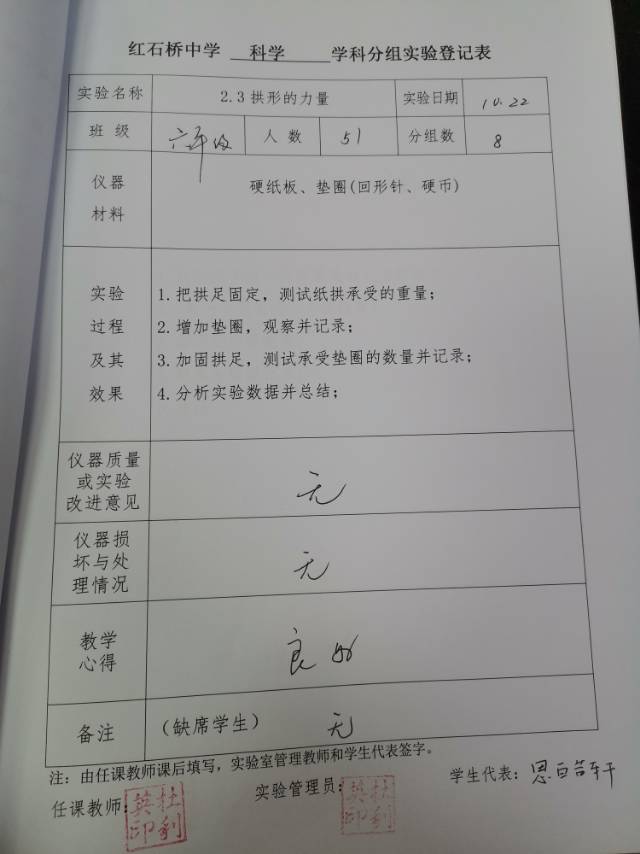 红石桥中学 科学 学科分组实验登记表
实验名称 2.3拱形的力量 实验日期 10.22
班 级 六年级 人 数 51 分组数 8
仪器
材料
硬纸板、垫圈(回形针、硬币)
实验
过程
及其
效果
1.把拱足固定，测试纸拱承受的重量；
2.增加垫圈，观察并记录；
3.加固拱足，测试承受垫圈的数量并记录；
4.分析实验数据并总结；
仪器质量
或实验
改进意见
无
仪器损
坏与处
理情况
无
教学
心得
良好
备注 （缺席学生） 无
注：由任课教师课后填写，实验室管理教师和学生代表签字。
任课教师： 杜利英印
实验管理员： 杜利英印
学生代表：